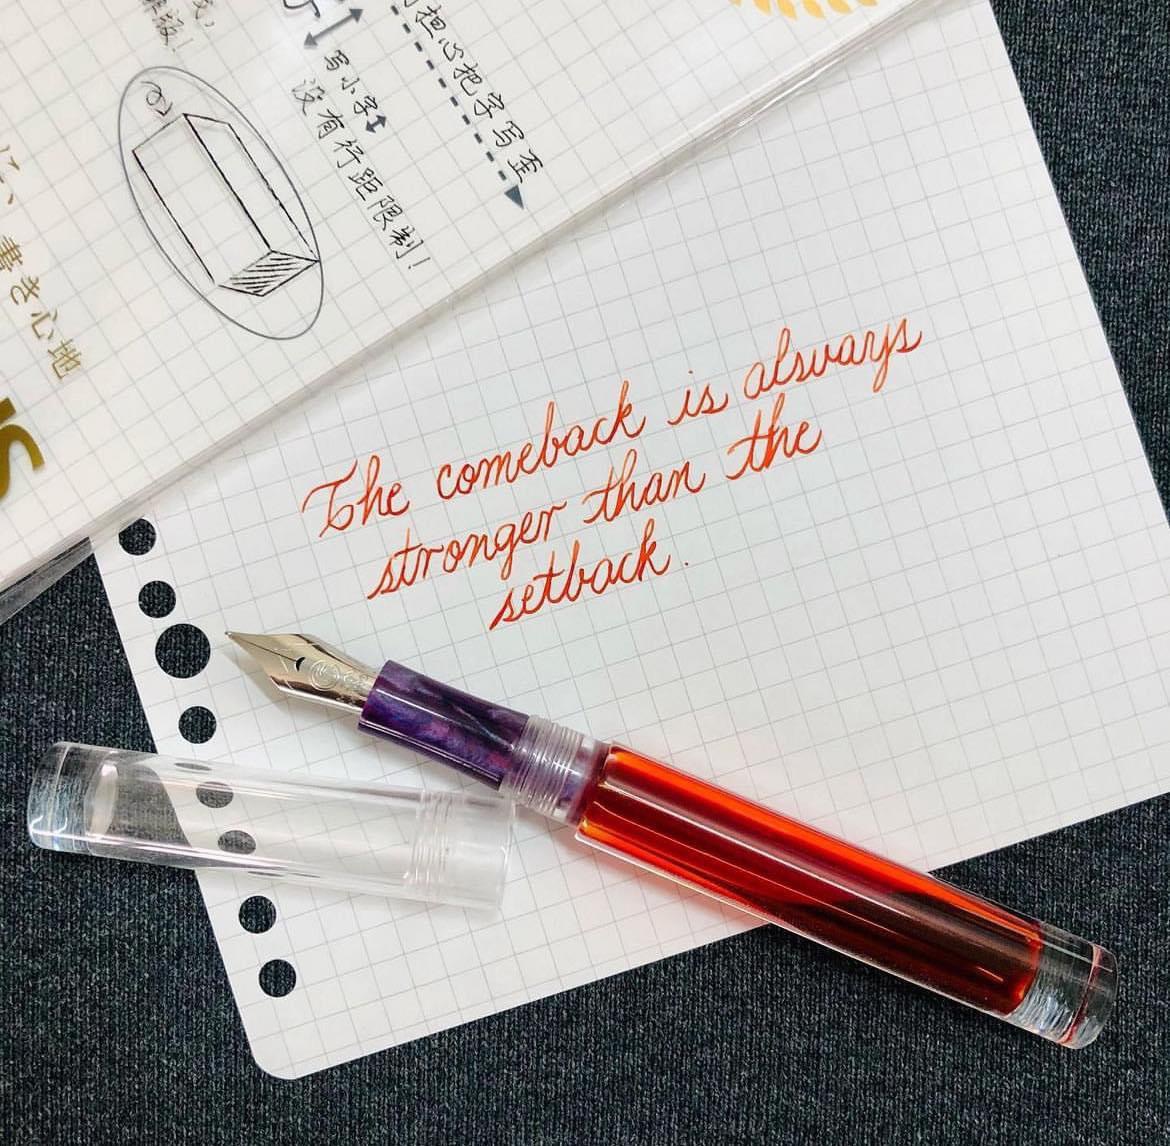 担心把字写歪
写小字
没有行距限制!
書き心地
The comeback is always
stronger than the
setback.